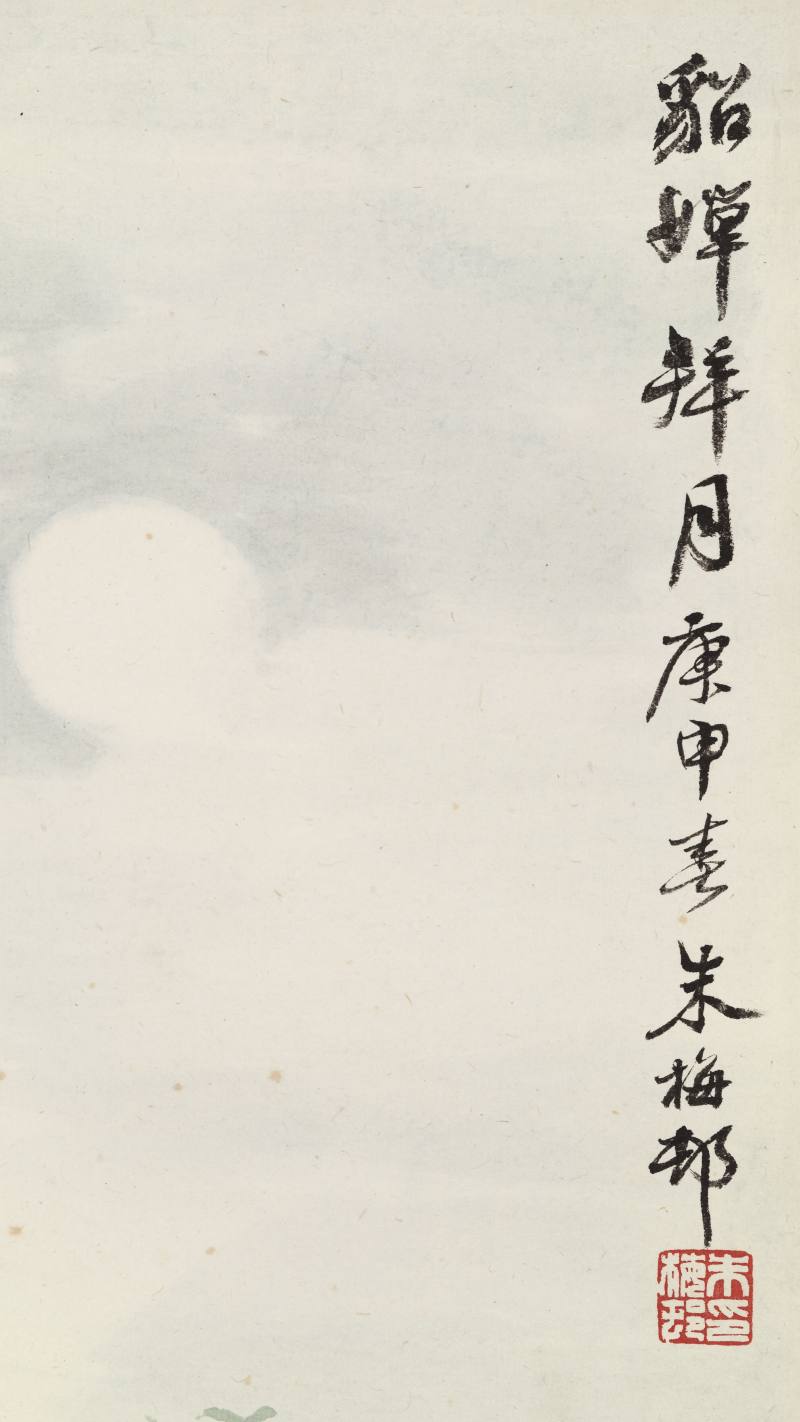 貂嬋拜月庚申春朱梅邨
朱印
梅邨